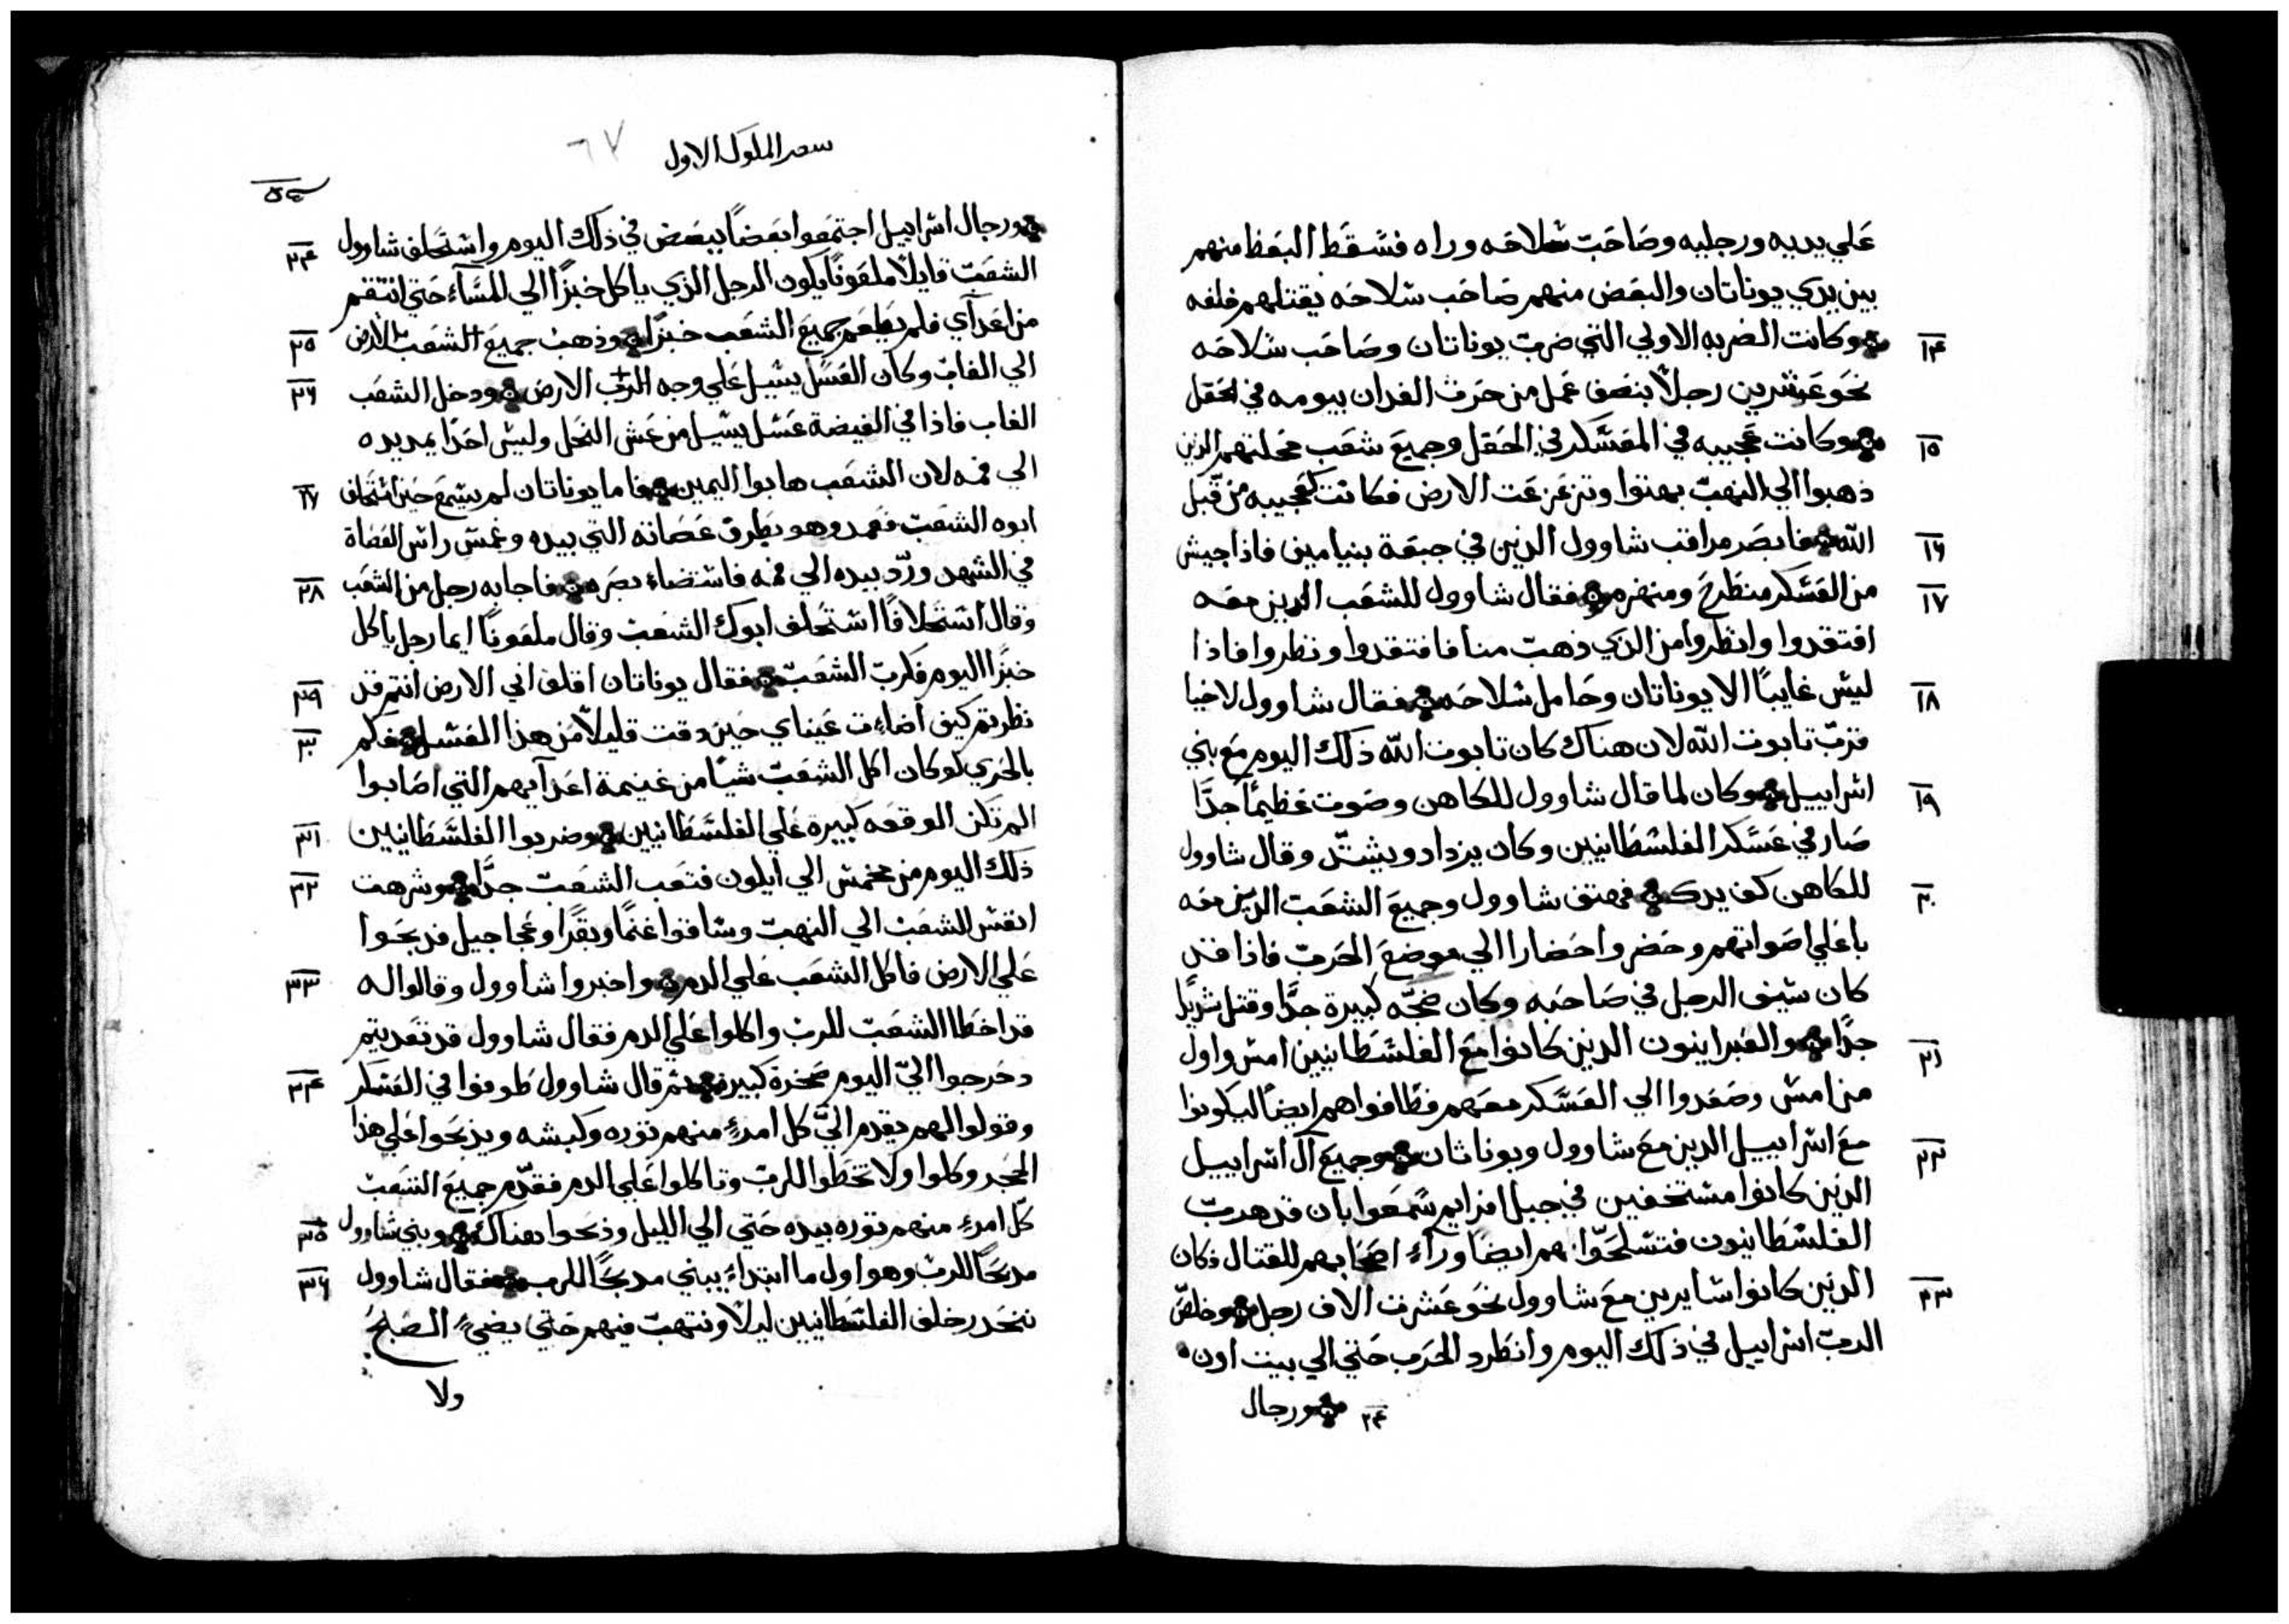 علي يديه ورجليه وصاحب سلاحه وراه فسقط البعظ منهم
بين يدي يوناتان والبعض منهم صاحب سلاحه يقتلهم خلفه
١٤ وكانت الضربه الاولي التي ضرب يوناتان وصاحب سلاحه
نحو عشرين رجلاً بنصف عمل من حرث الفدان بيومه في الحقل
١٥ وكانت عجيبه في المعسكر في الحقل وجميع شعب محلتهم الذين
ذهبوا الي النهب بهتوا وتزعزعت الارض فكانت كعجيبه من قبل
١٦ الله فابصر مراقب شاوول الذين في جبعة بنيامين فاذا جيش
١٧ من العسكر منطرح ومنهزم فقال شاوول للشعب الذين معه
افتقدوا وانظروا من الذي ذهب منا فافتقدوا ونظروا فاذا
١٨ ليس غايباً الا يوناتان وحامل سلاحه فقال شاوول لاخيا
قرب تابوت الله لان هناك كان تابوت الله ذلك اليوم مع بني
١٩ اسراييل وكان لما قال شاوول للكاهن وصوت عظيماً جداً
صار في عسكر الفلسطانيين وكان يزداد ويشتد وقال شاوول
٢٠ للكاهن كف يدك فهتف شاوول وجميع الشعب الذين معه
باعلي اصواتهم وحضروا حضارا الي موضع الحرب فاذا قد
كان سيف الرجل في صاحبه وكان ضجه كبيرة جداً وقتل شديداً
٢١ جداً والعبراينون الذين كانوا مع الفلسطانيين امس واول
من امس وصعدوا الي العسكر معهم فطافوا هم ايضاً ليكونوا
٢٢ مع اسراييل الذين مع شاوول ويوناثان وجميع آل اسراييل
الذين كانوا مستخفين في جبل افرايم سمعوا بان قد هرب
الفلسطانيون فتسلحوا هم ايضاً وراء اصحابهم للقتال فكان
٢٣ الذين كانوا سايرين مع شاوول نحو عشرت الاف رجل وخلص
الرب اسراييل في ذلك اليوم وانطرد الحرب حتي الي بيت اون
٢٤ ورجال
سفر الملوك الاول
٦٧
٢٤ ورجال اسراييل اجتمعوا بعضاً ببعض في ذلك اليوم واستحلف شاوول
الشعب قايلاً ملعوناً يكون الرجل الذي ياكل خبزاً الي المساء حتي انتقم
٢٥ من اعدآي فلم يطعم جميع الشعب خبزاً وذهب جميع الشعب الارض
٢٦ الي الغاب وكان العسل يسيل علي وجه الرب الارض ودخل الشعب
الغاب فاذا في الغيضة عسل يسيل من عش النحل وليس احداً يمد يده
٢٧ الي فمه لان الشعب هابوا اليمين فاما يوناتان لم يسمع حين استحلف
ابوه الشعب فعمد وهو بطرف عصاته التي بيده وغمس راس العصاة
٢٨ في الشهد ورد بيده الي فمه فاستضاء بصره فاجابه رجل من الشعب
وقال استحلافاً استحلف ابوك الشعب وقال ملعوناً ايما رجل ياكل
٢٩ خبزاً اليوم فكرب الشعب فقال يوناتان اقلق ابي الارض انتم قد
٣٠ نظرتم كيف اضاءت عيناي حين دقت قليلاً من هذا العسل فكم
بالحري لو كان اكل الشعب شياً من غنيمة اعدآيهم التي اصابوا
٣١ الم تكن الوقعه كبيرة علي الفلسطانيين وضربوا الفلسطانيين
٣٢ ذلك اليوم من مخمس الي ايلون فتعب الشعب جداً وشرهت
انفس الشعب الي النهب وساقوا غنماً وبقراً وعجاجيل فذبحوا
٣٣ علي الارض فاكل الشعب علي الدم واخبروا شاوول وقالوا له
قد اخطا الشعب للرب واكلوا علي الدم فقال شاوول قد تعديتم
٣٤ دحرجوا اليّ اليوم صخرة كبيرة ثم قال شاوول طوفوا في العسكر
وقولوا لهم يقدم اليّ كل امرءٍ منهم توره وكبشه ويذبحوا علي هذا
الحجر وكلوا ولا تخطوا للرب وتاكلوا علي الدم فقدم جميع الشعب
٣٥ كل امرءٍ منهم توره بيده حتي الي الليل وذبحوا هناك وبني شاوول
٣٦ مذبحاً للرب وهو اول ما ابتداء يبني مدبحاً للرب فقال شاوول
ننحدر خلف الفلسطانيين ليلاً وننتهب فيهم حتي يضيء الصبح
ولا